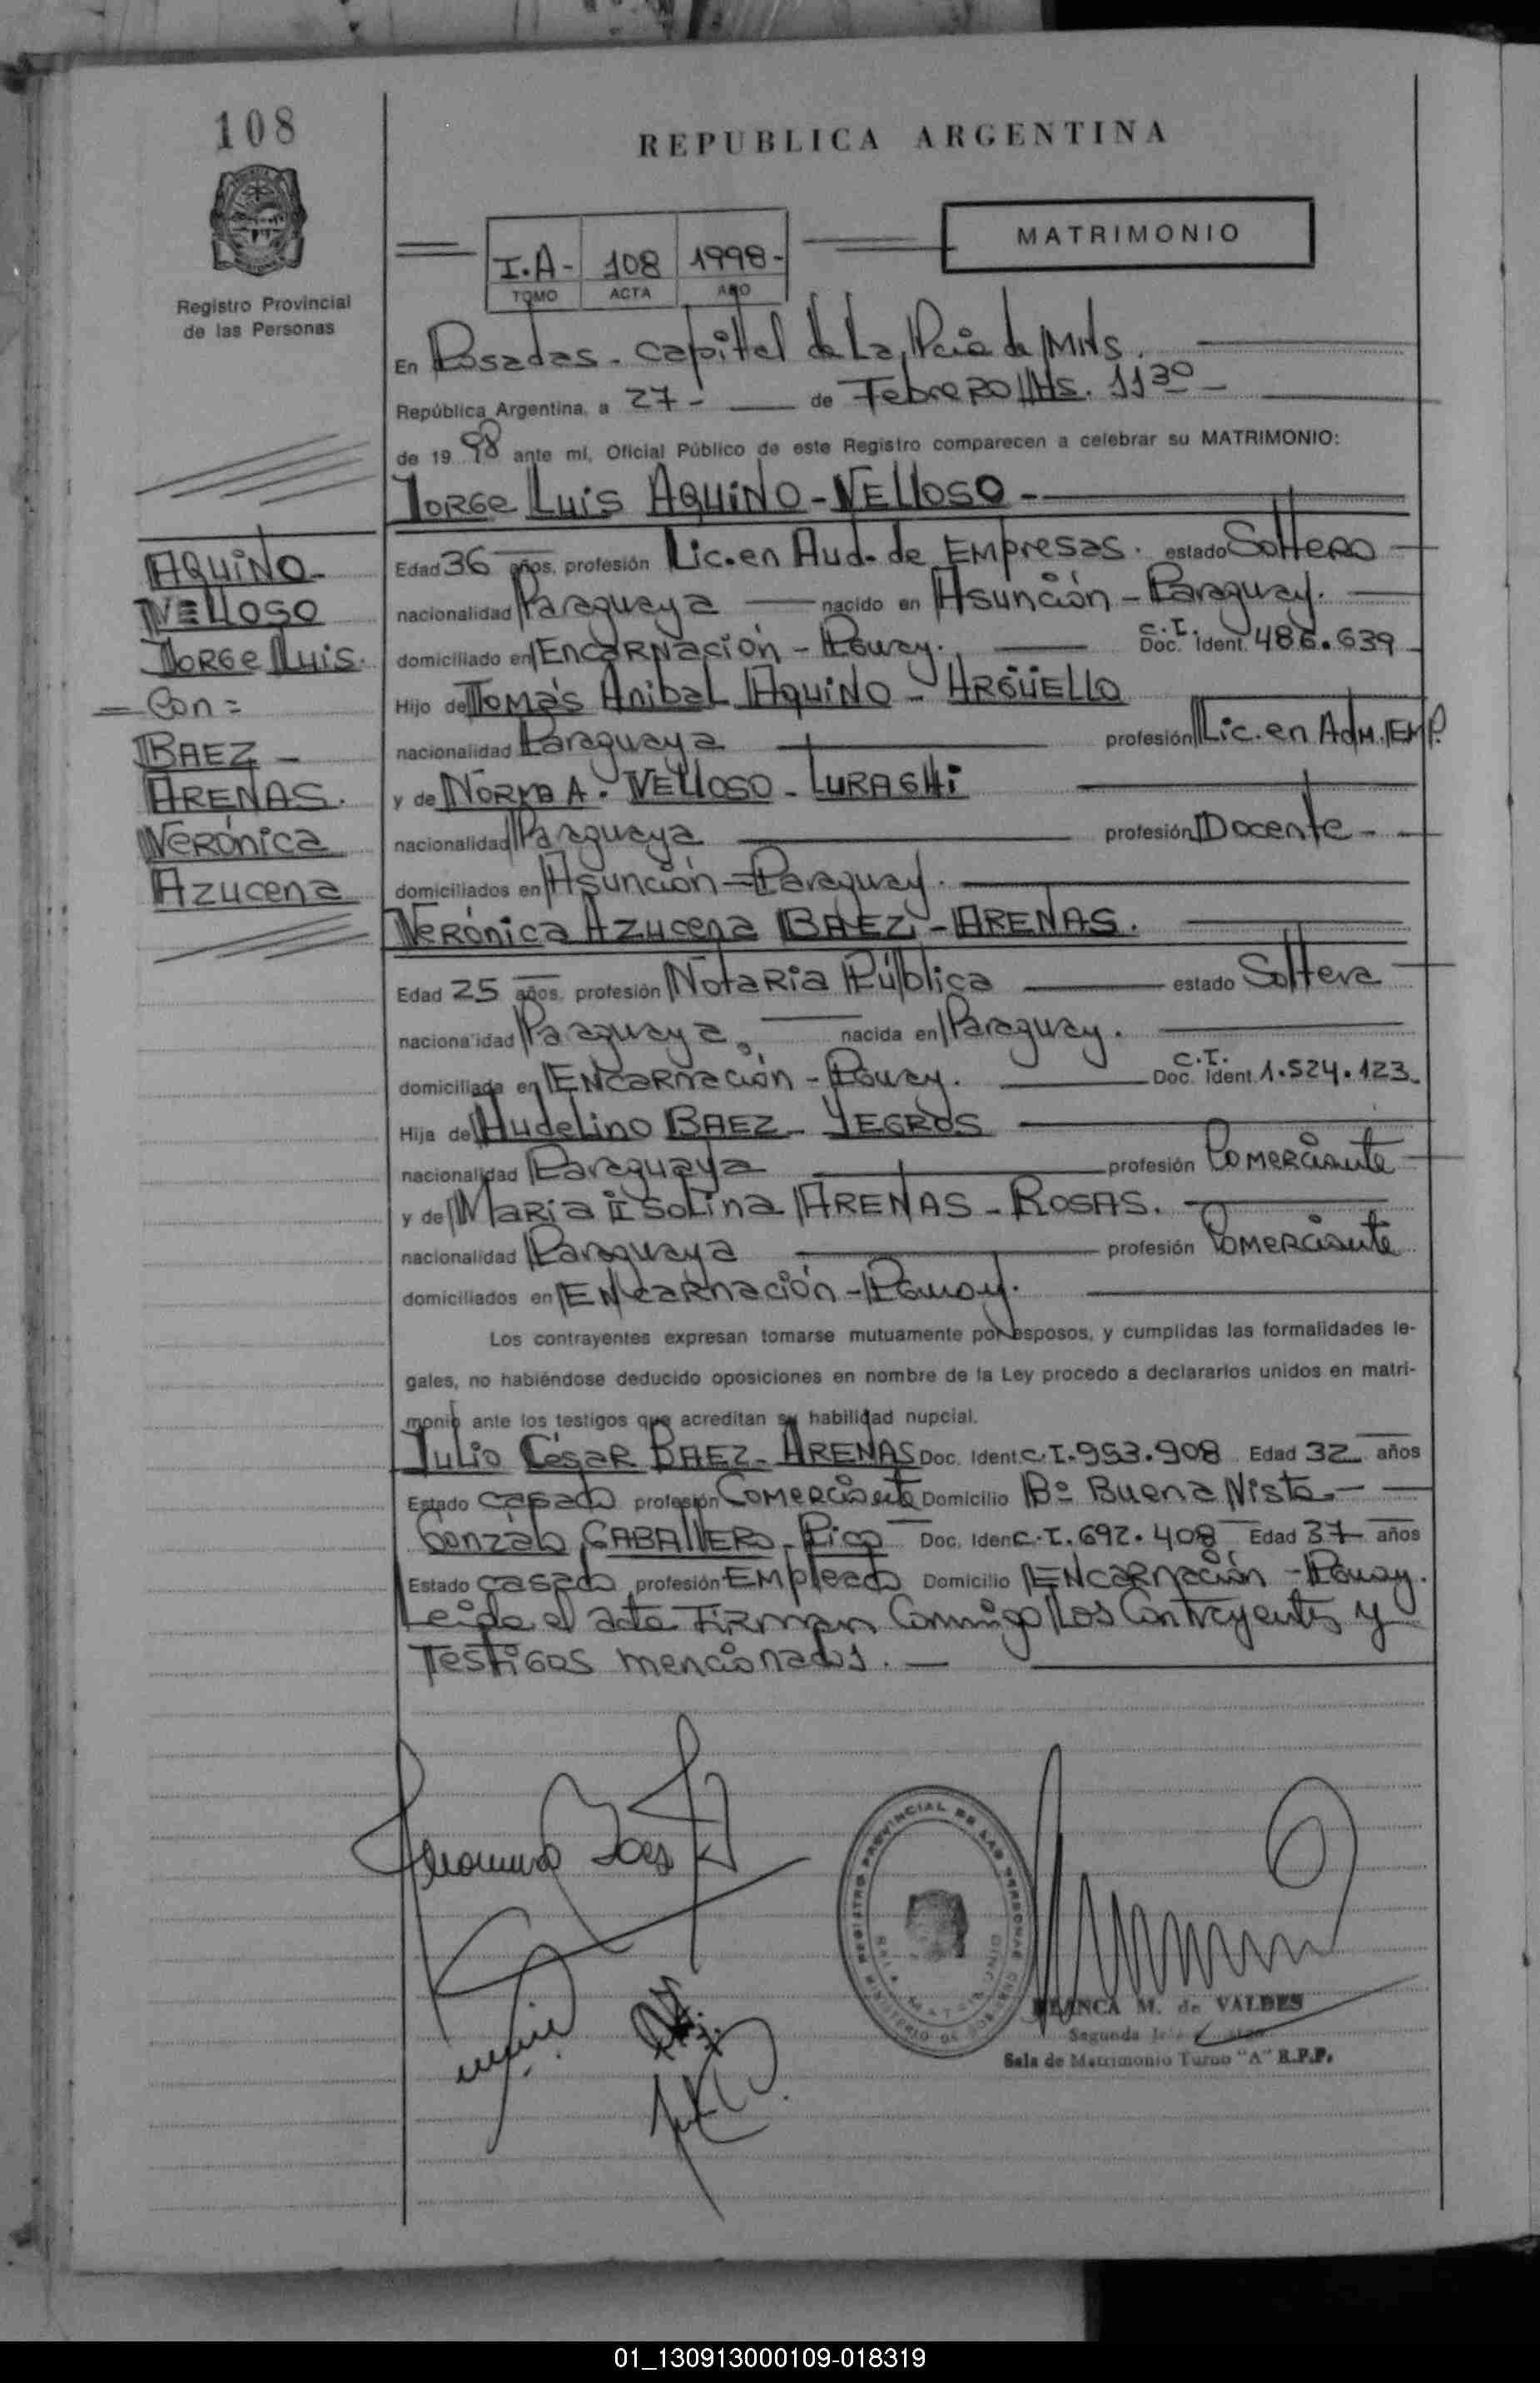 108
REPUBLICA ARGENTINA
MATRIMONIO
I.A- 108 1998-
TOMO ACTA AÑO
Registro Provincial
de las Personas
En Posadas - Capital de La Pcia de Mnes.
República Argentina, a 27- de Febrero Hs. 11 30
de 19 98 ante mí, Oficial Público de este Registro comparecen a celebrar su MATRIMONIO:
Jorge Luis AQUINO - VELLOSO -
AQUINO-
VELLOSO
Jorge Luis.
- Con =
BAEZ -
ARENAS.
Verónica
Azucena
Edad 36 años, profesión Lic. en Aud. de Empresas. estado Soltero
nacionalidad Paraguaya nacido en Asunción - Paraguay.
domiciliado en Encarnación - Pguay. C.I. Doc. Ident. 486.639
Hijo de Tomás Anibal AQUINO - ARGÜELLO
nacionalidad Paraguaya profesión Lic. en Adm. Emp.
y de Norma A. VELLOSO - LURAGHI
nacionalidad Paraguaya profesión Docente -
domiciliados en Asunción - Paraguay.
Verónica Azucena BAEZ - ARENAS.
Edad 25 años, profesión Notaria Pública estado Soltera
nacionalidad Paraguaya, nacida en Paraguay.
domiciliada en Encarnación - Pguay. C.I. Doc. Ident. 1.524.123.
Hija de Audelino BAEZ - YEGROS
nacionalidad Paraguaya profesión Comerciante
y de Maria Isolina ARENAS - ROSAS.
nacionalidad Paraguaya profesión Comerciante
domiciliados en Encarnación - Pguay.
Los contrayentes expresan tomarse mutuamente por esposos, y cumplidas las formalidades le-
gales, no habiéndose deducido oposiciones en nombre de la Ley procedo a declararlos unidos en matri-
monio ante los testigos que acreditan su habilidad nupcial.
Julio César BAEZ - ARENAS Doc. Ident. C.I. 953.908 Edad 32 años
Estado casado profesión Comerciante Domicilio Bº Buena Vista -
Gonzalo CABALLERO - Pico Doc. Iden C.I. 692.408 Edad 37 años
Estado casado profesión Empleado Domicilio Encarnación - Pguay.
Leida el acta Firman Conmigo Los Contrayentes y
Testigos mencionados.
REGISTRO PROVINCIAL DE LAS PERSONAS
BLANCA M. de VALDES
Segunda
Sala de Matrimonio Turno "A" R.P.P.
01_130913000109-018319